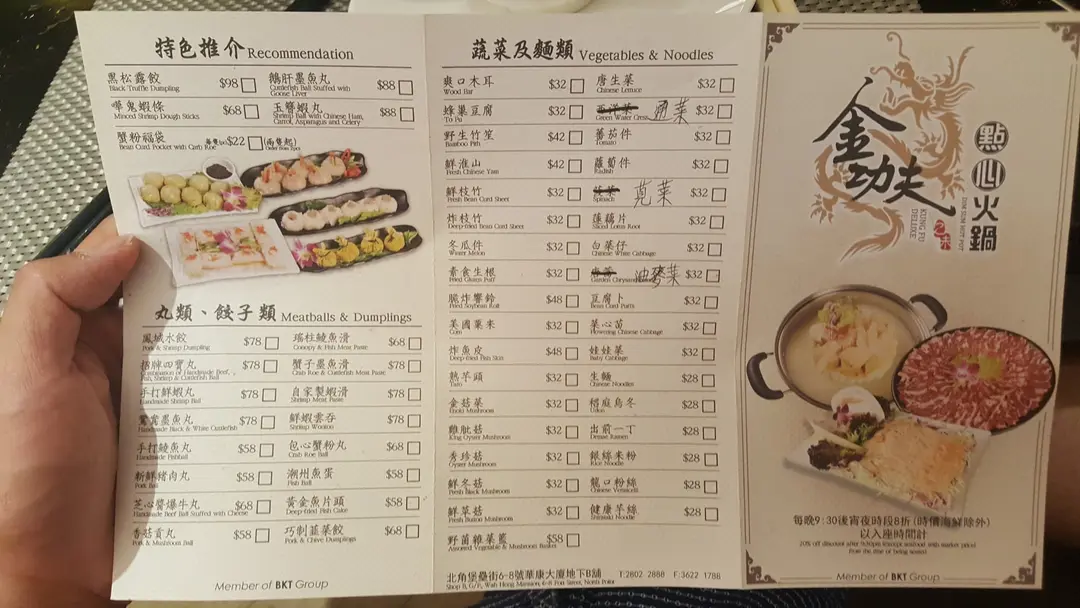 特色推介 Recommendation
黑松露餃 $98
Black Truffle Dumpling
嘩鬼蝦條 $68
Minced Shrimp Dough Sticks
蟹粉福袋 每隻(pc)$22 (兩隻起)
Bean Curd Pocket with Crab Roe
鵝肝墨魚丸 $88
Cuttlefish Ball Stuffed with Goose Liver
玉簪蝦丸 $88
Shrimp Ball with Chinese Ham, Carrot, Asparagus and Celery
丸類、餃子類 Meatballs & Dumplings
鳳城水餃 $78
Pork & Shrimp Dumpling
招牌四寶丸 $78
Combination of Handmade Beef, Fish, Shrimp & Cuttlefish Ball
手打鮮蝦丸 $78
Handmade Shrimp Ball
鴛鴦墨魚丸 $78
Handmade Black & White Cuttlefish
手打鯪魚丸 $58
Handmade Fishball
新鮮豬肉丸 $58
Pork Ball
芝心醬爆牛丸 $68
Handmade Beef Ball Stuffed with Cheese
香菇貢丸 $58
Pork & Mushroom Ball
瑤柱鯪魚滑 $68
Conopy & Fish Meat Paste
蟹子墨魚滑 $78
Crab Roe & Cuttlefish Meat Paste
自家製蝦滑 $78
Shrimp Meat Paste
鮮蝦雲吞 $78
Shrimp Wonton
包心蟹粉丸 $68
Crab Roe Ball
潮州魚蛋 $58
Fish Ball
黃金魚片頭 $58
Deep-fried Fish Cake
巧制韮菜餃 $68
Pork & Chive Dumplings
Member of BKT Group
蔬菜及麵類 Vegetables & Noodles
爽口木耳 $32
Wood Ear
蜂巢豆腐 $32
To Fu
野生竹笙 $42
Bamboo Pith
鮮淮山 $42
Fresh Chinese Yam
鮮枝竹 $32
Fresh Bean Curd Sheet
炸枝竹 $32
Deep-fried Bean Curd Sheet
冬瓜件 $32
Winter Melon
素食生根 $32
Fried Gluten Puff
脆炸響鈴 $48
Fried Soybean Roll
美國粟米 $32
Corn
炸魚皮 $48
Deep-fried Fish Skin
熟芋頭 $32
Taro
金菇菜 $32
Enoki Mushroom
雞肶菇 $32
King Oyster Mushroom
秀珍菇 $32
Oyster Mushroom
鮮冬菇 $32
Fresh Black Mushroom
鮮草菇 $32
Fresh Button Mushroom
野菌雜菜籃 $58
Assorted Vegetable & Mushroom Basket
唐生菜 $32
Chinese Lettuce
西洋菜 通菜 $32
Green Water Cress
蕃茄件 $32
Tomato
蘿蔔件 $32
Radish
菠菜 莧菜 $32
Spinach
蓮藕片 $32
Sliced Lotus Root
白菜仔 $32
Chinese White Cabbage
油麥菜 $32
Garden
豆腐卜 $32
Bean Curd Puffs
菜心苗 $32
Flowering Chinese Cabbage
娃娃菜 $32
Baby Cabbage
生麵 $28
Chinese Noodles
稻庭烏冬 $28
Udon
出前一丁 $28
Demae Ramen
銀絲米粉 $28
Rice Noodle
龍口粉絲 $28
Chinese Vermicelli
健康芋絲 $28
Shirataki Noodle
北角堡壘街6-8號華康大廈地下B舖 T:2802 2888 F:3622 1788
Shop B, G/F, Wah Hong Mansion, 6-8 Fort Street, North Point
金功夫
點心火鍋
DIM SUM HOT POT
KUNG FU DELUXE
之味
每晚9:30後宵夜時段8折(時價海鮮除外)
以入座時間計
20% off discount after 9:30pm (except seafood with market price)
From the time of being seated
Member of BKT Group